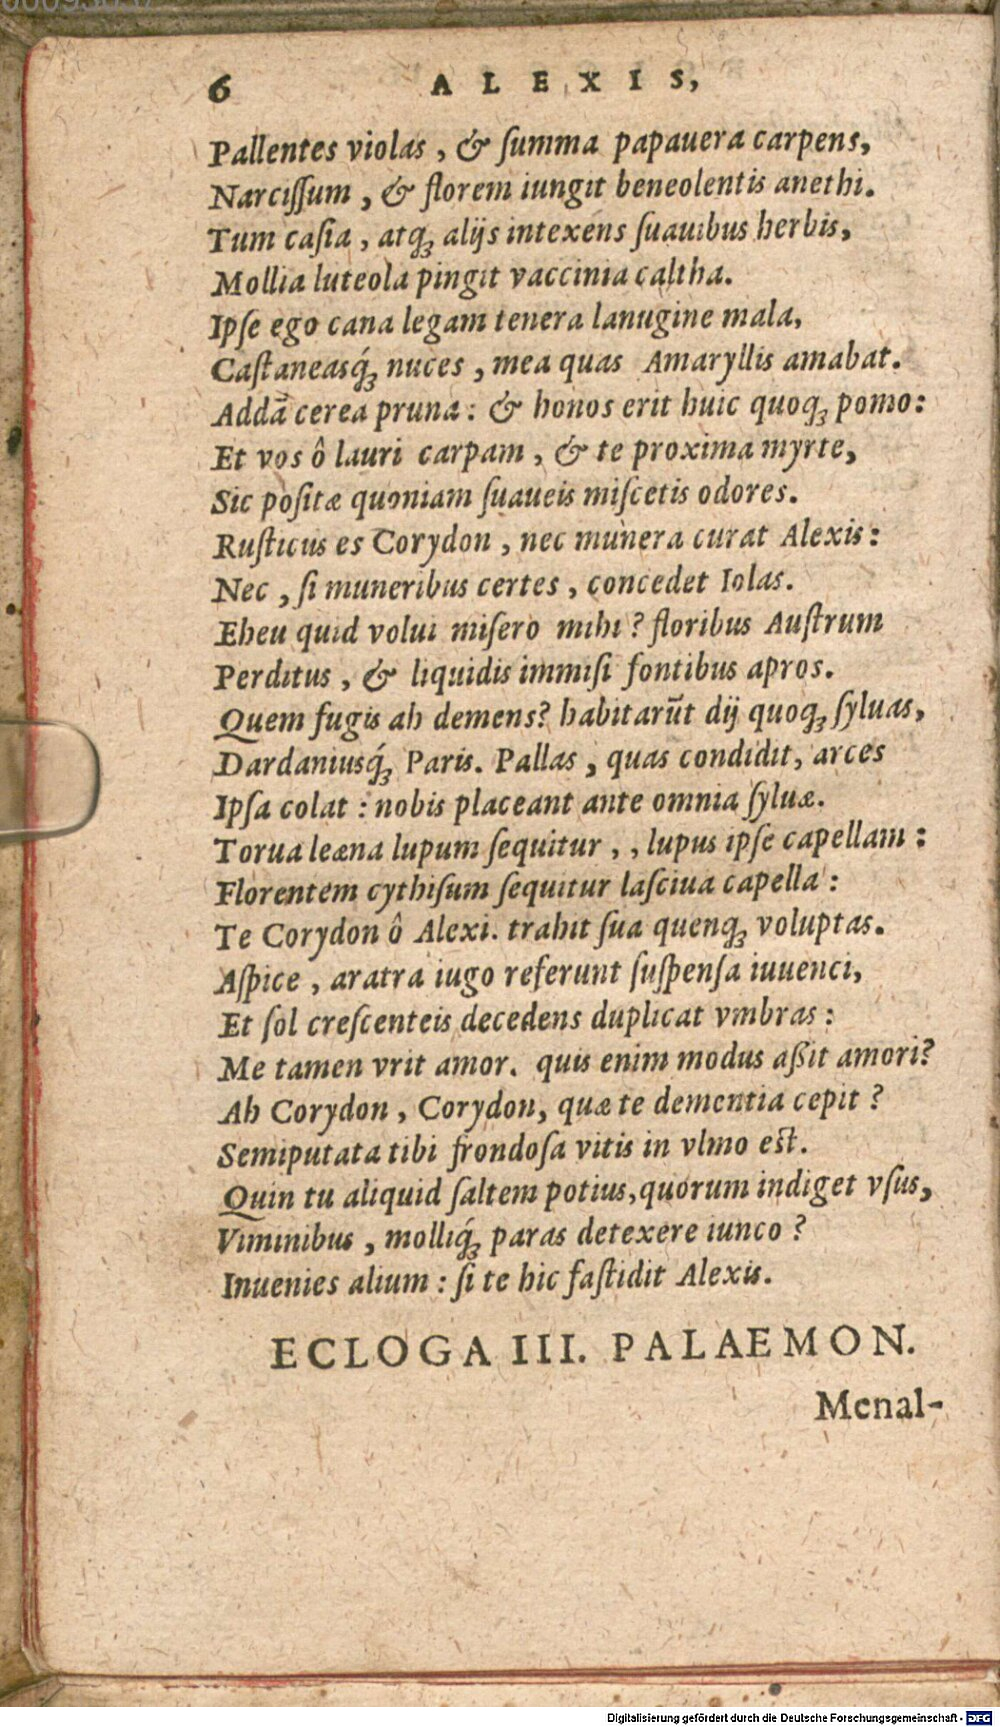 6 ALEXIS,
Pallentes violas, & ſumma papauera carpens,
Narciſſum, & florem iungit beneolentis anethi.
Tum caſia, atqꝫ alijs intexens ſuauibus herbis,
Mollia luteola pingit vaccinia caltha.
Ipſe ego cana legam tenera lanugine mala,
Caſtaneasq́ꝫ nuces, mea quas Amaryllis amabat.
Addā cerea pruna: & honos erit huic quoqꝫ pomo:
Et vos ô lauri carpam, & te proxima myrte,
Sic poſitæ quoniam ſuaueis miſcetis odores.
Ruſticus es Corydon, nec munera curat Alexis:
Nec, ſi muneribus certes, concedet Iolas.
Eheu quid volui miſero mihi? floribus Auſtrum
Perditus, & liquidis immiſi fontibus apros.
Quem fugis ah demens? habitarūt dij quoqꝫ ſyluas,
Dardaniusq́ꝫ Paris. Pallas, quas condidit, arces
Ipſa colat: nobis placeant ante omnia ſyluæ.
Torua leæna lupum ſequitur,, lupus ipſe capellam:
Florentem cythiſum ſequitur laſciua capella:
Te Corydon ô Alexi. trahit ſua quenqꝫ voluptas.
Aſpice, aratra iugo referunt ſuſpenſa iuuenci,
Et ſol creſcenteis decedens duplicat vmbras:
Me tamen vrit amor. quis enim modus aßit amori?
Ah Corydon, Corydon, quæ te dementia cepit?
Semiputata tibi frondoſa vitis in vlmo eſt.
Quin tu aliquid ſaltem potius, quorum indiget vſus,
Viminibus, molliq́ꝫ paras detexere iunco?
Inuenies alium: ſi te hic faſtidit Alexis.
ECLOGA III. PALAEMON.
Menal-
Digitalisierung gefördert durch die Deutsche Forschungsgemeinschaft - DFG